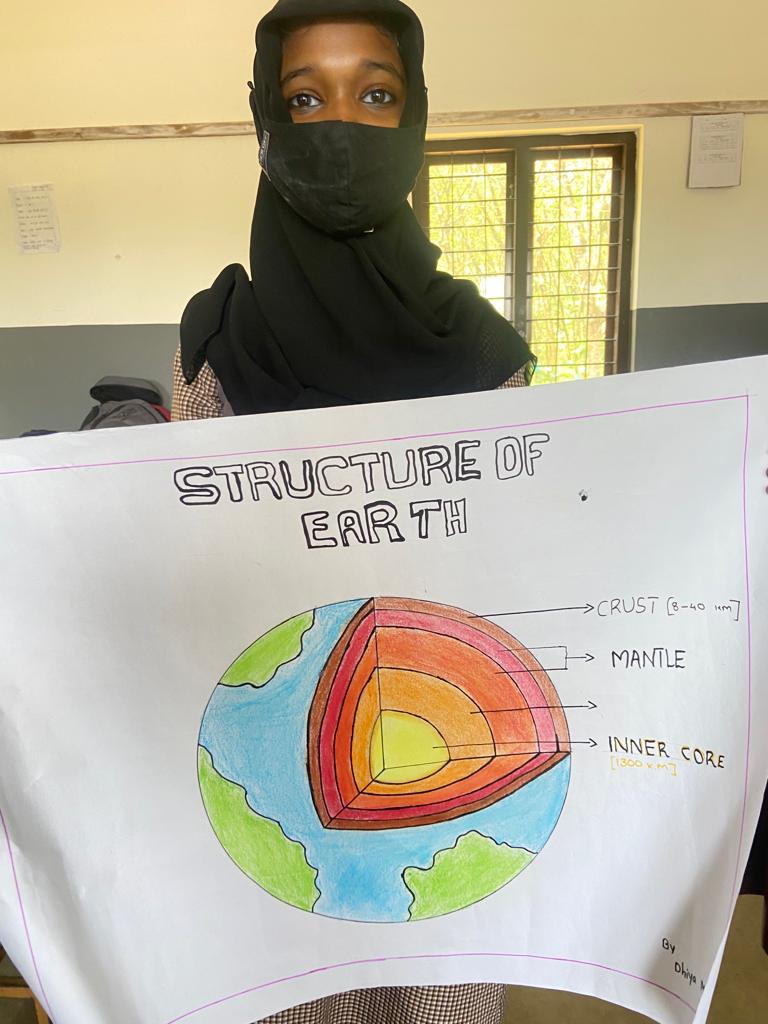 STRUCTURE OF
EARTH
CRUST [8-40 KM]
MANTLE
INNER CORE
[1300 K.M]
By
Dhiya M